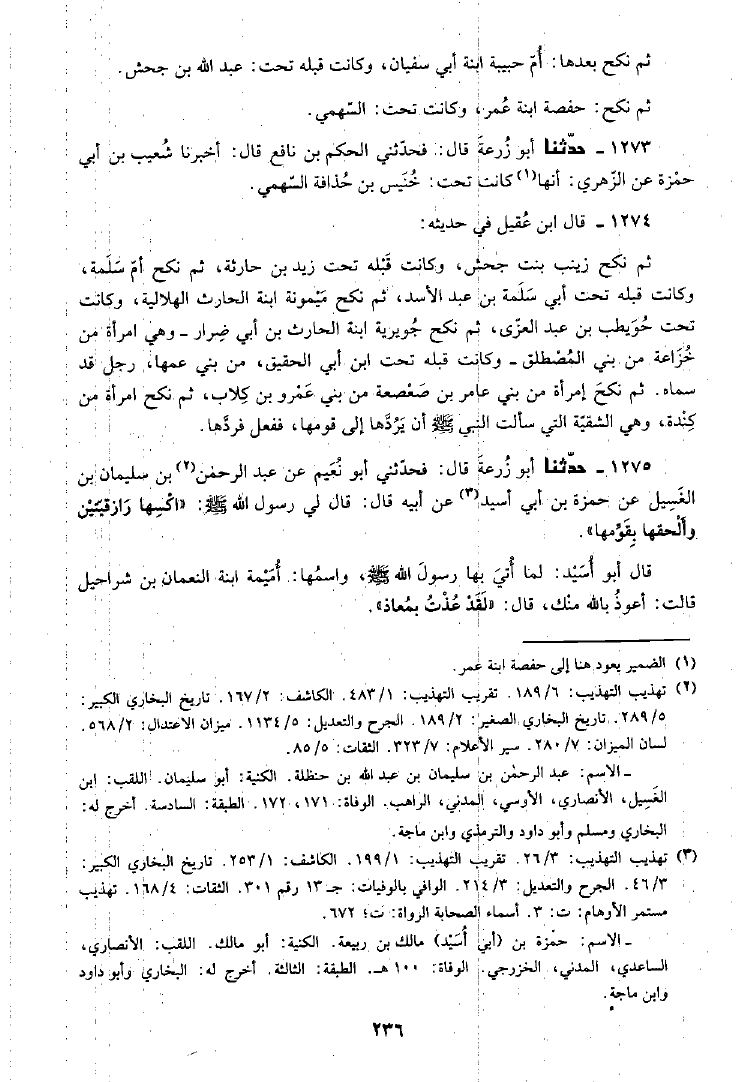 ثم نكح بعدها: أُمّ حبيبة ابنة أبي سفيان، وكانت قبله تحت: عبد الله بن جحش.
ثم نكح: حفصة ابنة عُمر، وكانت تحت: السّهمي.
١٢٧٣ ـ حدّثنا أبو زُرعةَ قال: فحدّثني الحكم بن نافع قال: أخبرنا شُعيب بن أبي
حمْزة عن الزّهري: أنها(١) كانت تحت: خُنَيس بن حُذافة السّهمي.
١٢٧٤ ـ قال ابن عُقيل في حديثه:
ثم نكح زينب بنت جحش، وكانت قَبْله تحت زيد بن حارثة، ثم نكح أمّ سَلَمة،
وكانت قبله تحت أبي سَلَمة بن عبد الأسد، ثم نكح مَيْمونة ابنة الحارث الهلالية، وكانت
تحت حُوَيطب بن عبد العزّى، ثم نكح جُويرية ابنة الحارث بن أبي ضِرار ـ وهي امرأة من
خُزَاعة من بني المُصْطلق ـ وكانت قبله تحت ابن أبي الحقيق، من بني عمها، رجل قد
سماه. ثم نكحَ إمرأة من بني عامر بن صَعْصعة من بني عَمْرو بن كِلاب، ثم نكح امرأة من
كِندة، وهي الشقيّة التي سألت النبي ﷺ أن يَرُدَّها إلى قومها، ففعل فردَّها.
١٢٧٥ ـ حدّثنا أبو زُرعةَ قال: فحدّثني أبو نُعَيم عن عبد الرحمٰن(٢) بن سليمان بن
الغَسِيل عن حمزة بن أبي أسيد(٣) عن أبيه قال: قال لي رسول الله ﷺ: «اكْسِها رَازقيّتَيْن
وأَلْحقها بِقَوْمها».
قال أبو أُسَيْد: لما أُتيَ بها رسولَ الله ﷺ، واسمُها: أُمَيْمة ابنة النعمان بن شراحيل
قالت: أعوذُ بالله منك، قال: «لَقَدْ عُذْتُ بمُعاذ».
(١) الضمير يعود هنا إلى حفصة ابنة عمر.
(٢) تهذيب التهذيب: ١٨٩/٦. تقريب التهذيب: ٤٨٣/١. الكاشف: ١٦٧/٢. تاريخ البخاري الكبير:
٢٨٩/٥. تاريخ البخاري الصغير: ١٨٩/٢. الجرح والتعديل: ١١٣٤/٥. ميزان الاعتدال: ٥٦٨/٢.
لسان الميزان: ٢٨٠/٧. سير الأعلام: ٣٢٣/٧. الثقات: ٨٥/٥.
ـ الاسم: عبد الرحمٰن بن سليمان بن عبد الله بن حنظلة. الكنية: أبو سليمان. اللقب: ابن
الغَسيل، الأنصاري، الأوسي، المدني، الراهب. الوفاة: ١٧١، ١٧٢. الطبقة: السادسة. أخرج له:
البخاري ومسلم وأبو داود والترمذي وابن ماجة.
(٣) تهذيب التهذيب: ٢٦/٣. تقريب التهذيب: ١٩٩/١. الكاشف: ٢٥٣/١. تاريخ البخاري الكبير:
٤٦/٣. الجرح والتعديل: ٢١٤/٣. الوافي بالوفيات: جـ ١٣ رقم ٣٠١. الثقات: ١٦٨/٤. تهذيب
مستمر الأوهام: ت: ٣. أسماء الصحابة الرواة: ت؛ ٦٧٢.
ـ الاسم: حمْزة بن (أبي أُسَيْد) مالك بن ربيعة. الكنية: أبو مالك. اللقب: الأنصاري،
الساعدي، المدني، الخزرجي. الوفاة: ١٠٠ هـ. الطبقة: الثالثة. أخرج له: البخاري وأبو داود
وابن ماجة.
٢٣٦